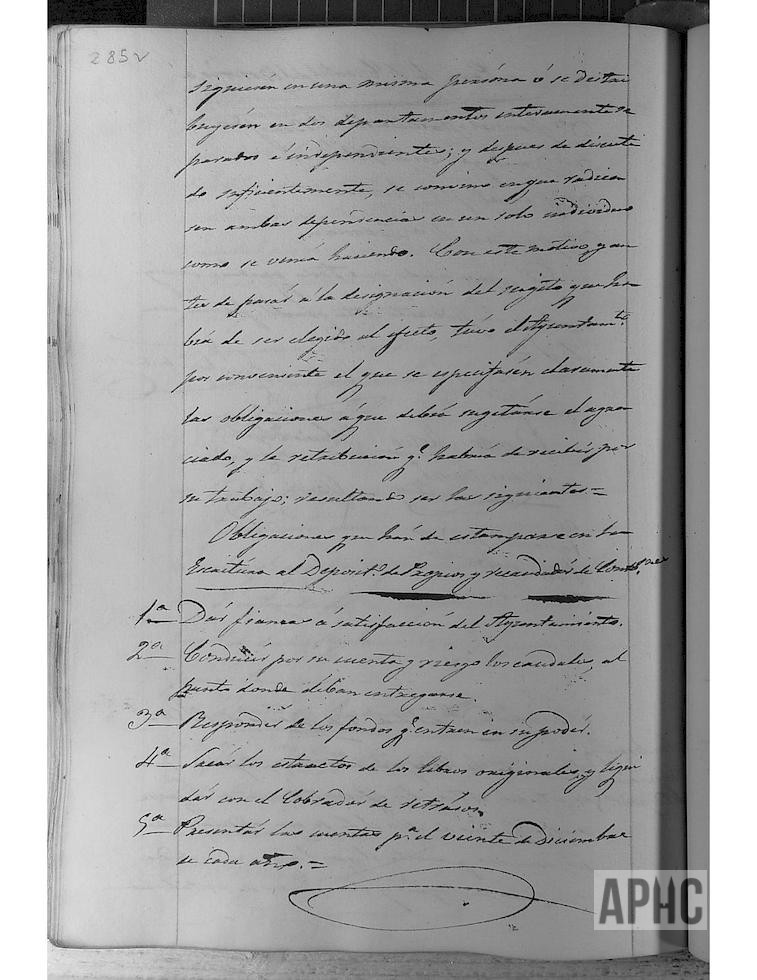 285v
siguiesen en una misma persóna ó se distri
buyesén en dos departamentos enteramente se
parados é independientes; y despues de discuti
do suficientemente, se convino en que radica
sen ambas dependencias en un solo individuo
como se venía haciendo. Con este motivo, y an
tes de pasár á la designación del sugeto que ha
brá de ser elegido al efecto, túvo el Ayuntamto.
por conveniente el que se especificasén claramente
las obligaciones á que deberá sugetárse el agra
ciado, y la retribución q.e habría de recibir por
su trabajo; resultando ser las siguientes =
Obligaciones que han de estamparse en la
Escritúra al Deposit.o de Propios y recaudadór de Contb.nes
1.a Dár fianza á satisfacción del Ayuntamiento.
2.a Conducir por su cuenta y riesgo los caudales, al
punto donde deban entregarse.
3.a Respondér de los fondos q.e entren en su podér.
4.a Sacár los estractos de los libros origionales, y liqui
dár con el Cobradór de retrásos.
5.a Presentár las cuentas p.a el veinte de Diciembre
de cada año. =
APHC